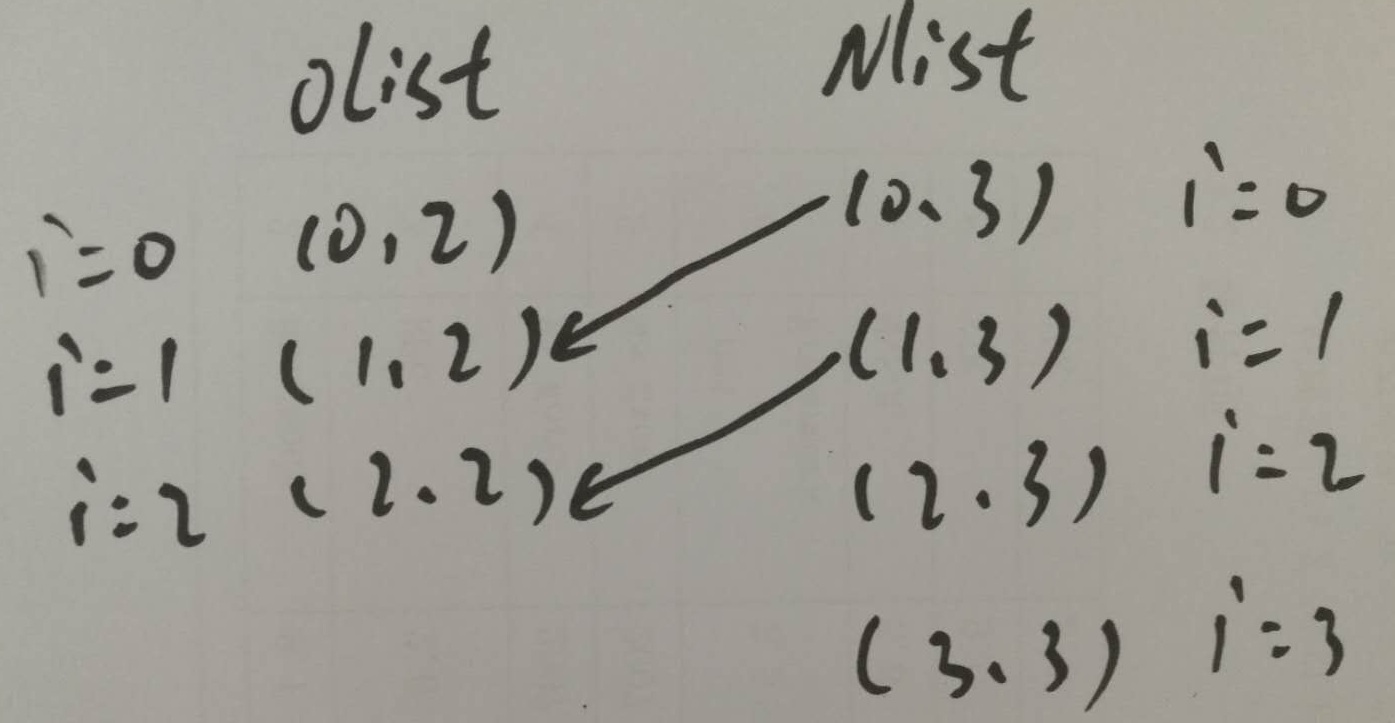 Olist Nlist
i=0 (0,2) (0.3) i=0
i=1 (1,2) (1.3) i=1
i=2 (2.2) (2.3) i=2
(3.3) i=3